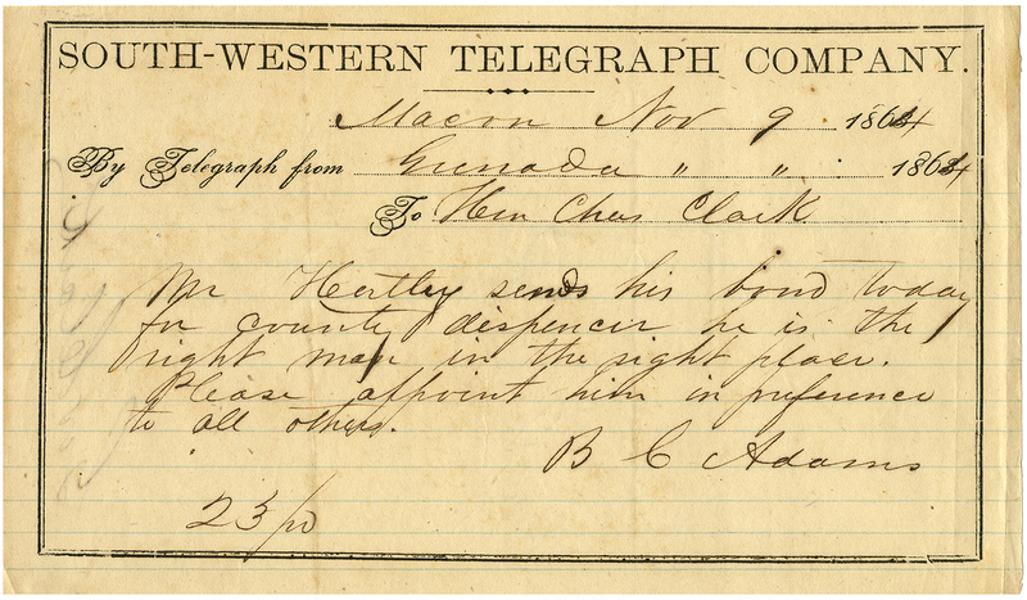 SOUTH-WESTERN TELEGRAPH COMPANY.
Macon Nov 9 1864
By Telegraph from Grenada " " 1864
To Hon Chas Clark
Mr Hartley sends his bond today
for county dispencer he is the
right man in the right place.
Please appoint him in preference
to all others.
B C Adams
23/